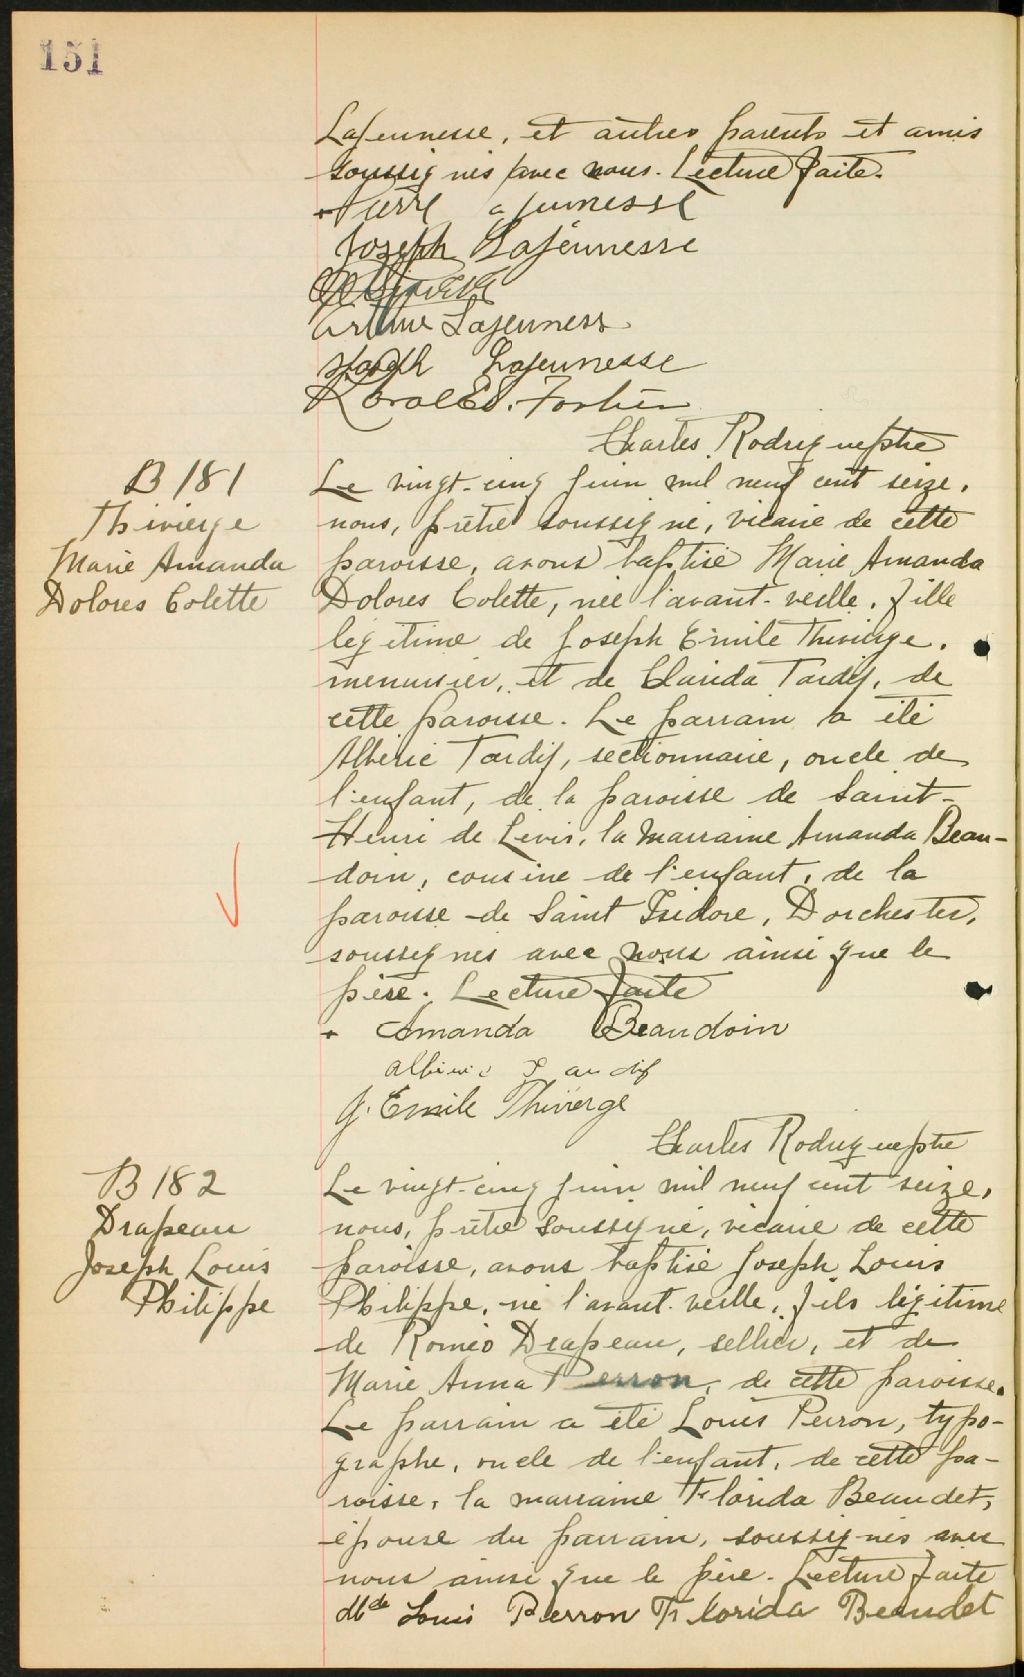 151
Lajeunesse, et autres parents et amis
soussignés avec nous. Lecture faite.
Joseph Lajeunesse
Arthur Lajeuness
Lajeunesse
Ed. Fortier
Charles Rodrigue ptre
B 181
Thivierge
Marie Amanda
Dolores Colette
Le vingt-cinq juin mil neuf cent seize,
nous, prêtre soussigné, vicaire de cette
paroisse, avons baptisé Marie Amanda
Dolores Colette, née l'avant-veille, fille
légitime de Joseph Emile Thivierge,
menuisier, et de Clarida Tardif, de
cette paroisse. Le parrain a été
Albéric Tardif, sectionnaire, oncle de
l'enfant, de la paroisse de Saint-
Henri de Levis, la marraine Amanda Beau-
doin, cousine de l'enfant, de la
paroisse de Saint Isidore, Dorchester,
soussignés avec nous ainsi que le
père. Lecture faite
+ Amanda Beaudoin
J. Emile Thivierge
Charles Rodrigue ptre
B 182
Drapeau
Joseph Louis
Philippe
Le vingt-cinq juin mil neuf cent seize,
nous, prêtre soussigné, vicaire de cette
paroisse, avons baptisé Joseph Louis
Philippe, né l'avant-veille, fils légitime
de Roméo Drapeau, sellier, et de
Marie Anna Perron, de cette paroisse.
Le parrain a été Louis Perron, typo-
graphe, oncle de l'enfant, de cette pa-
roisse, la marraine Florida Beaudet,
épouse du parrain, soussignés avec
nous ainsi que le père. Lecture faite
Mde Louis Perron Florida Beaudet